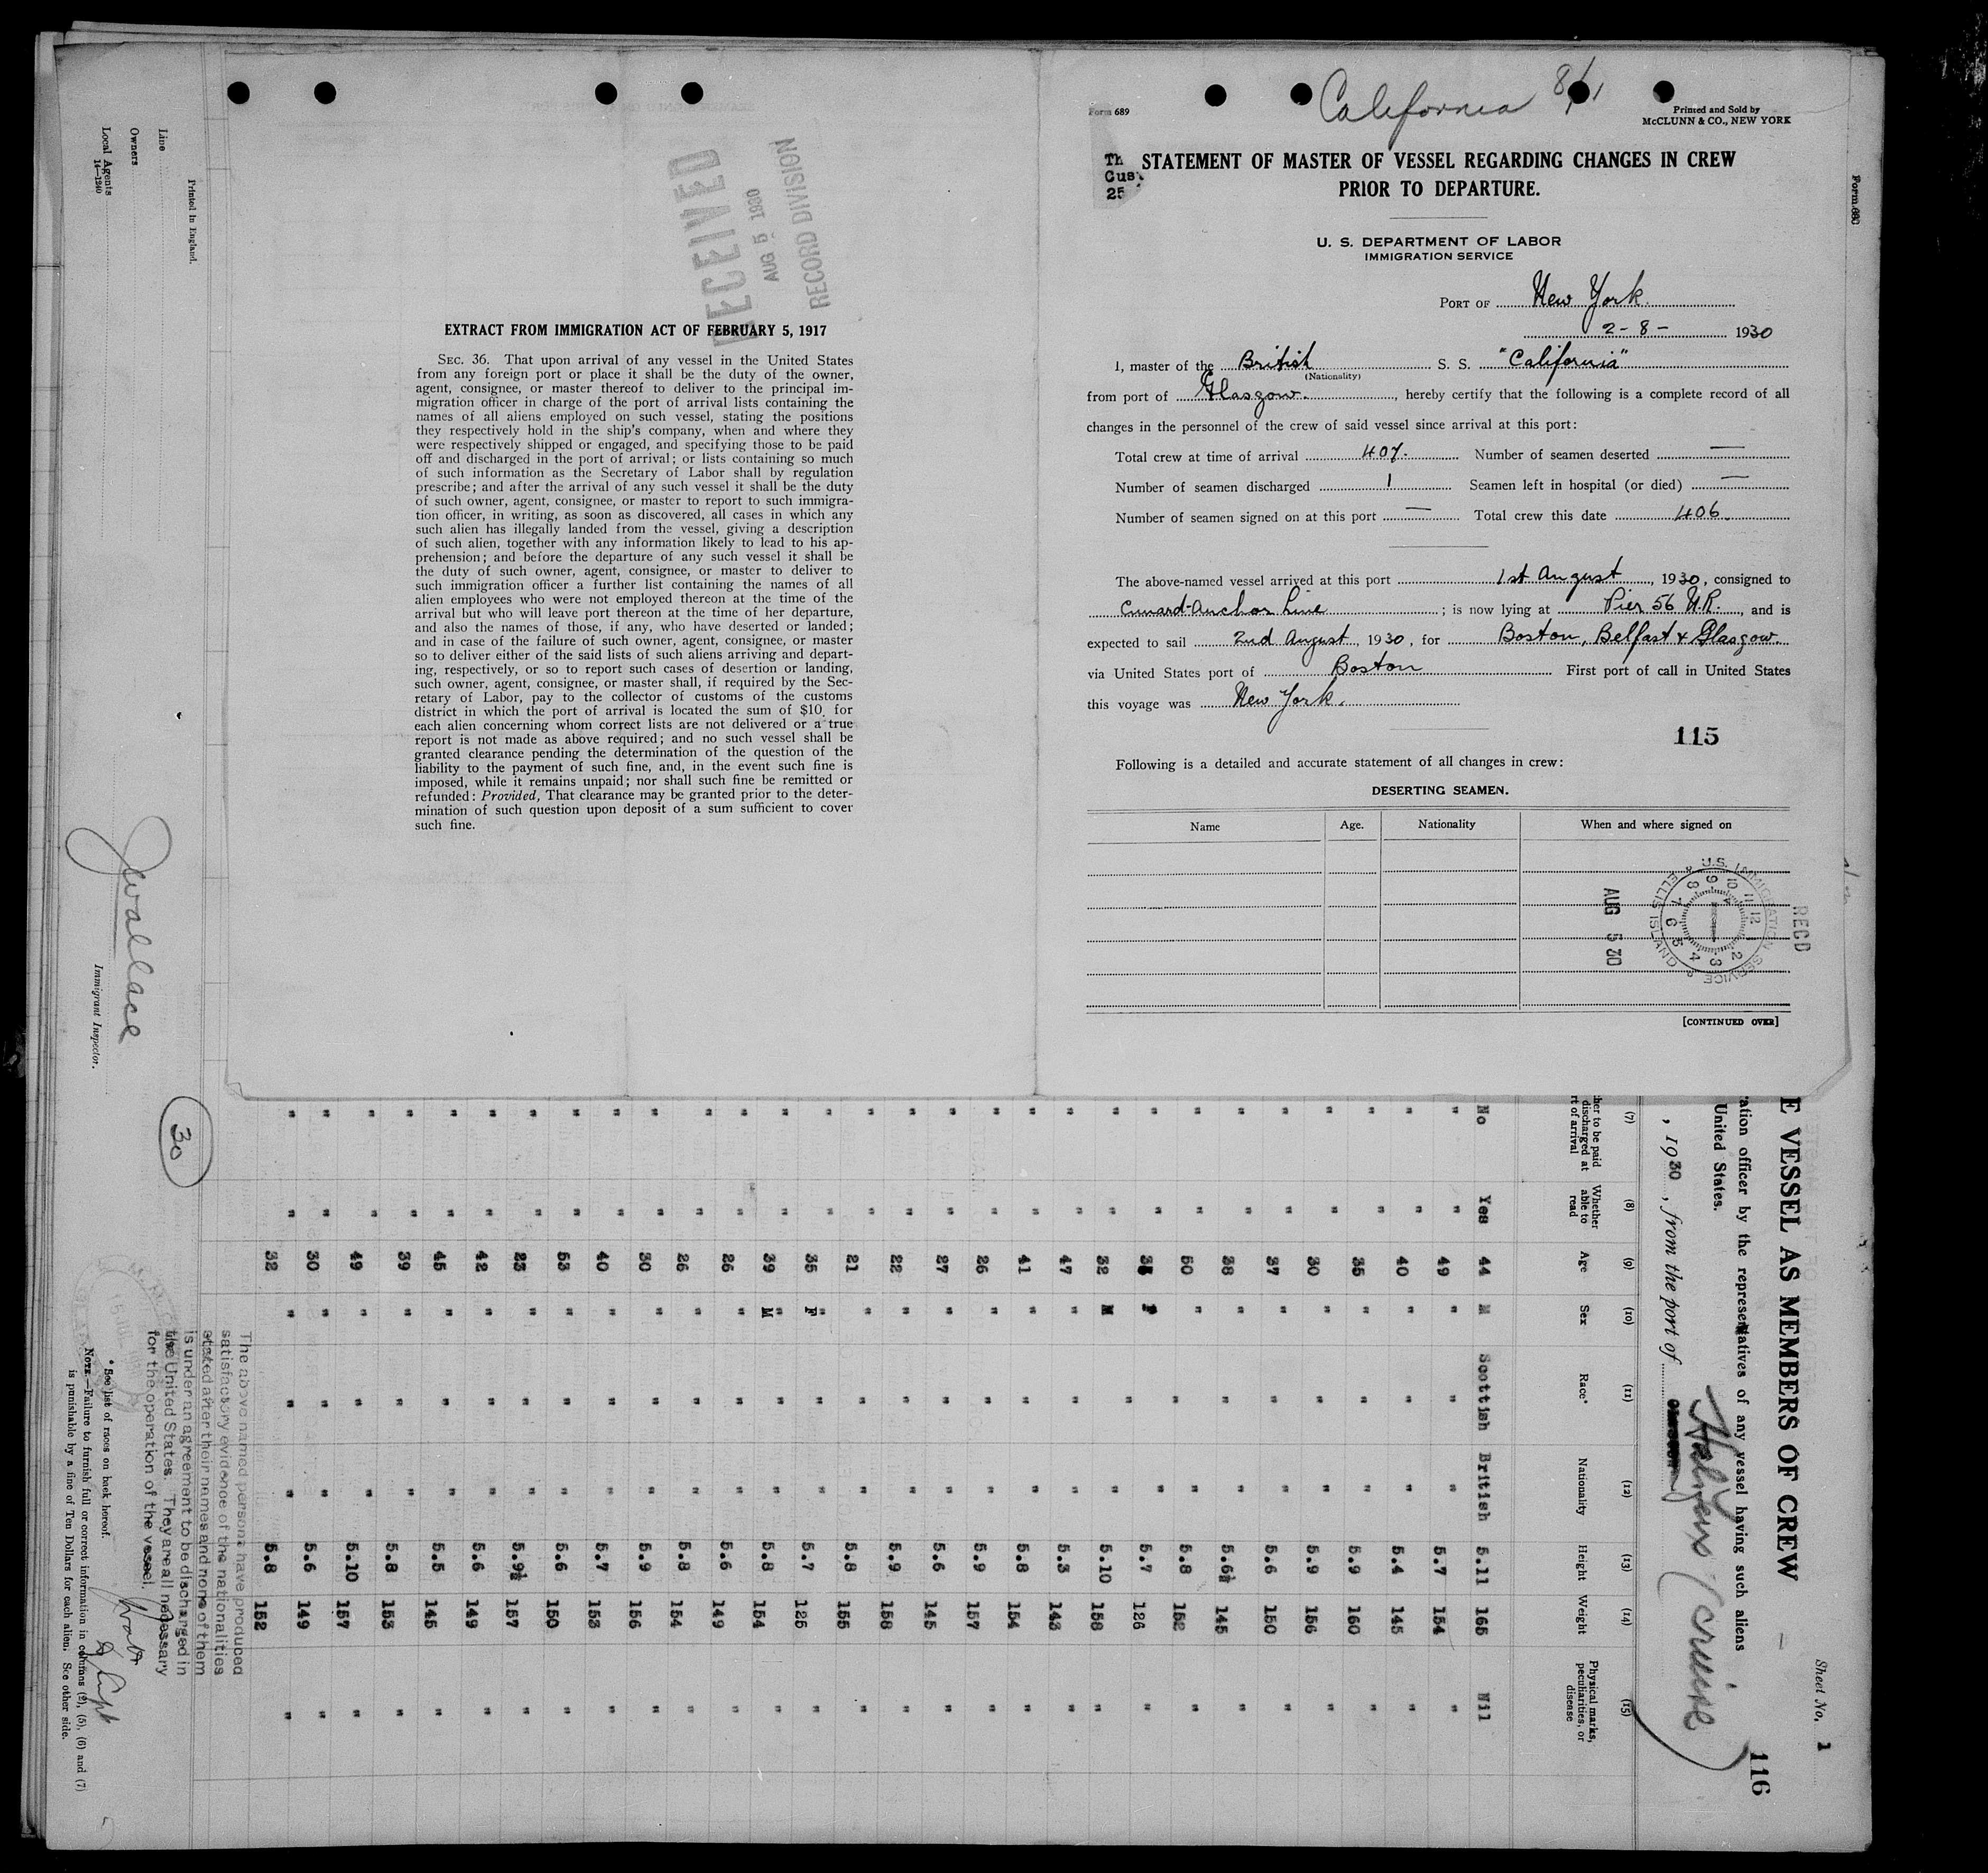 EXTRACT FROM IMMIGRATION ACT OF FEBRUARY 5, 1917
SEC. 36. That upon arrival of any vessel in the United States
from any foreign port or place it shall be the duty of the owner,
agent, consignee, or master thereof to deliver to the principal im-
migration officer in charge of the port of arrival lists containing the
names of all aliens employed on such vessel, stating the positions
they respectively hold in the ship's company, when and where they
were respectively shipped or engaged, and specifying those to be paid
off and discharged in the port of arrival; or lists containing so much
of such information as the Secretary of Labor shall by regulation
prescribe; and after the arrival of any such vessel it shall be the duty
of such owner, agent, consignee, or master to report to such immigra-
tion officer, in writing, as soon as discovered, all cases in which any
such alien has illegally landed from the vessel, giving a description
of such alien, together with any information likely to lead to his ap-
prehension; and before the departure of any such vessel it shall be
the duty of such owner, agent, consignee, or master to deliver to
such immigration officer a further list containing the names of all
alien employees who were not employed thereon at the time of the
arrival but who will leave port thereon at the time of her departure,
and also the names of those, if any, who have deserted or landed;
and in case of the failure of such owner, agent, consignee, or master
so to deliver either of the said lists of such aliens arriving and depart-
ing, respectively, or so to report such cases of desertion or landing,
such owner, agent, consignee, or master shall, if required by the Sec-
retary of Labor, pay to the collector of customs of the customs
district in which the port of arrival is located the sum of $10 for
each alien concerning whom correct lists are not delivered or a true
report is not made as above required; and no such vessel shall be
granted clearance pending the determination of the question of the
liability to the payment of such fine, and, in the event such fine is
imposed, while it remains unpaid; nor shall such fine be remitted or
refunded: Provided, That clearance may be granted prior to the deter-
mination of such question upon deposit of a sum sufficient to cover
such fine.
RECEIVED
AUG 5 1930
RECORD DIVISION
Form 689
California 8/1
Printed and Sold by
McCLUNN & CO., NEW YORK
Th
Cus
25
STATEMENT OF MASTER OF VESSEL REGARDING CHANGES IN CREW
PRIOR TO DEPARTURE.
U. S. DEPARTMENT OF LABOR
IMMIGRATION SERVICE
PORT OF New York
2-8- 1930
I, master of the British S. S. "California"
(Nationality)
from port of Glasgow, hereby certify that the following is a complete record of all
changes in the personnel of the crew of said vessel since arrival at this port:
Total crew at time of arrival 407. Number of seamen deserted —
Number of seamen discharged 1 Seamen left in hospital (or died) —
Number of seamen signed on at this port — Total crew this date 406.
The above-named vessel arrived at this port 1st August, 1930, consigned to
Cunard-Anchor Line; is now lying at Pier 56 N.R., and is
expected to sail 2nd August, 1930, for Boston, Belfast & Glasgow
via United States port of Boston First port of call in United States
this voyage was New York.
115
Following is a detailed and accurate statement of all changes in crew:
DESERTING SEAMEN.
Name Age. Nationality When and where signed on
RECD
U.S. IMMIGRATION SERVICE
ELLIS ISLAND
AUG 5 30
[CONTINUED OVER]
Form 680
Sheet No. 1
116
E VESSEL AS MEMBERS OF CREW
ration officer by the representatives of any vessel having such aliens
United States.
, 1930, from the port of Halifax (cruise)
(7) (8) (9) (10) (11) (12) (13) (14) (15)
her to be paid discharged at rt of arrival
Whether able to read
Age
Sex
Race*
Nationality
Height
Weight
Physical marks, peculiarities, or disease
No Yes 44 M Scottish British 5.11 165 Nil
" " 49 " " " 5.7 154 "
" " 40 " " " 5.4 145 "
" " 35 " " " 5.9 160 "
" " 30 " " " 5.9 156 "
" " 37 " " " 5.6 150 "
" " 38 " " " 5.6½ 145 "
" " 50 " " " 5.8 152 "
" " F " " 5.7 126 "
" " 32 M " " 5.10 158 "
" " 47 " " " 5.3 143 "
" " 41 " " " 5.8 154 "
" " 26 " " " 5.9 157 "
" " 27 " " " 5.6 145 "
" " 22 " " " 5.9 158 "
" " 21 " " " 5.8 155 "
" " 35 F " " 5.7 125 "
" " 39 M " " 5.8 154 "
" " 26 " " " 5.6 149 "
" " 26 " " " 5.8 154 "
" " 30 " " " 5.9 156 "
" " 40 " " " 5.7 153 "
" " 53 " " " 5.6 150 "
" " 23 " " " 5.9½ 157 "
" " 42 " " " 5.6 149 "
" " 45 " " " 5.5 145 "
" " 39 " " " 5.8 153 "
" " 49 " " " 5.10 157 "
" " 30 " " " 5.6 149 "
" " 32 " " " 5.8 152 "
The above named persons have produced
satisfactory evidence of the nationalities
stated after their names and none of them
is under an agreement to be discharged in
the United States. They are all necessary
for the operation of the vessel.
30
Printed in England.
Line
Owners
Local Agents
14—1240
JWallace
Immigrant Inspector.
* See list of races on back hereof.
NOTE.—Failure to furnish full or correct information in columns (2), (5), (6) and (7)
is punishable by a fine of Ten Dollars for each alien. See other side.